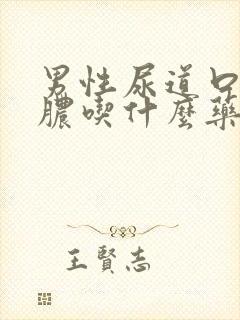 男性尿道口
膿喫什麼藥
王賢志